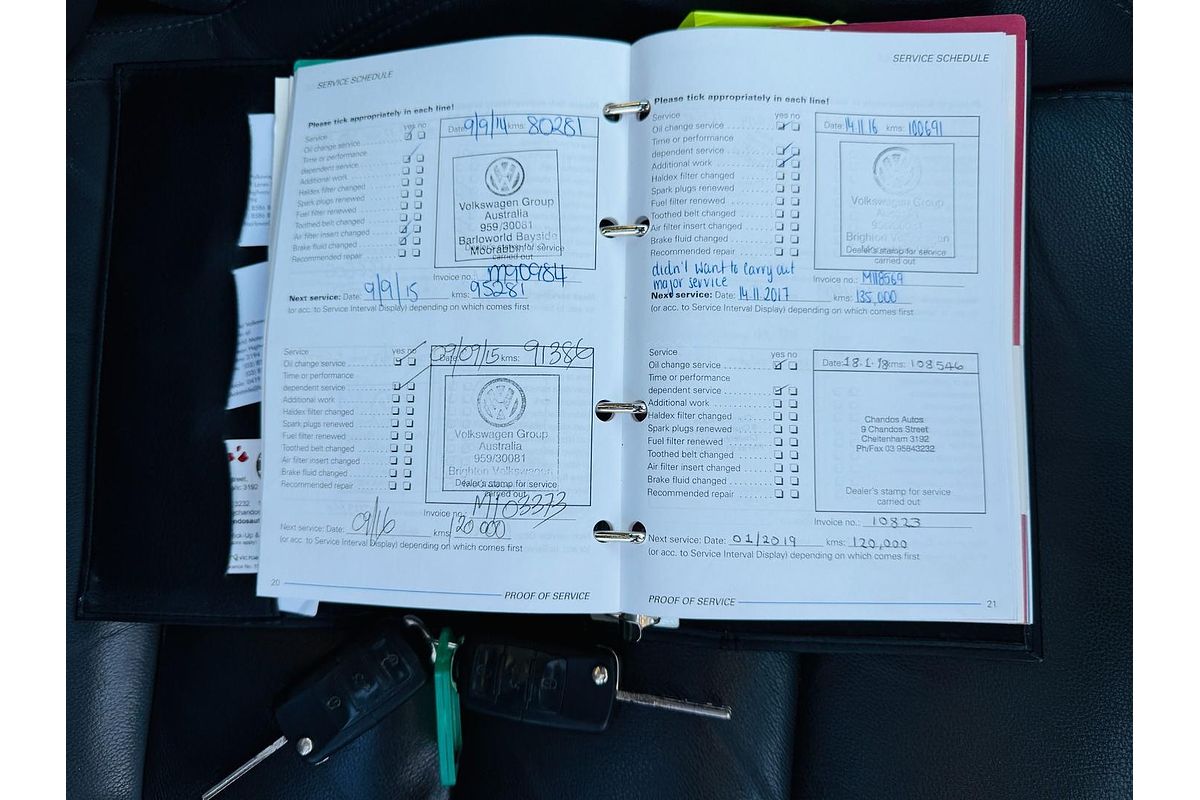 SERVICE SCHEDULE
Please tick appropriately in each line!
Service yes no
Oil change service
Time or performance
dependent service
Additional work
Haldex filter changed
Spark plugs renewed
Fuel filter renewed
Toothed belt changed
Air filter insert changed
Brake fluid changed
Recommended repair
Date: 9/9/14 kms: 80281
Volkswagen Group
Australia
959/30081
Barloworld Bayside
Moorabbin
Dealer's stamp for service
carried out
Invoice no.: M90984
Next service: Date: 9/9/15 kms: 95281
(or acc. to Service Interval Display) depending on which comes first
Service yes no
Oil change service
Time or performance
dependent service
Additional work
Haldex filter changed
Spark plugs renewed
Fuel filter renewed
Toothed belt changed
Air filter insert changed
Brake fluid changed
Recommended repair
Date: 09/09/15 kms: 91386
Volkswagen Group
Australia
959/30081
Brighton Volkswagen
Dealer's stamp for service
carried out
Invoice no.: M103373
Next service: Date: 09/16 kms: 120 000
(or acc. to Service Interval Display) depending on which comes first
20
PROOF OF SERVICE
SERVICE SCHEDULE
Please tick appropriately in each line!
Service yes no
Oil change service
Time or performance
dependent service
Additional work
Haldex filter changed
Spark plugs renewed
Fuel filter renewed
Toothed belt changed
Air filter insert changed
Brake fluid changed
Recommended repair
Date: 14.11.16 kms: 100691
Volkswagen Group
Australia
Brighton Volkswagen
Dealer's stamp for service
carried out
didn't want to carry out
major service
Invoice no.: M118569
Next service: Date: 14.11.2017 kms: 135,000
(or acc. to Service Interval Display) depending on which comes first
Service yes no
Oil change service
Time or performance
dependent service
Additional work
Haldex filter changed
Spark plugs renewed
Fuel filter renewed
Toothed belt changed
Air filter insert changed
Brake fluid changed
Recommended repair
Date: 18.1.98 kms: 108546
Chandos Autos
9 Chandos Street
Cheltenham 3192
Ph/Fax 03 95843232
Dealer's stamp for service
carried out
Invoice no.: 10823
Next service: Date: 01/2019 kms: 120,000
(or acc. to Service Interval Display) depending on which comes first
PROOF OF SERVICE
21